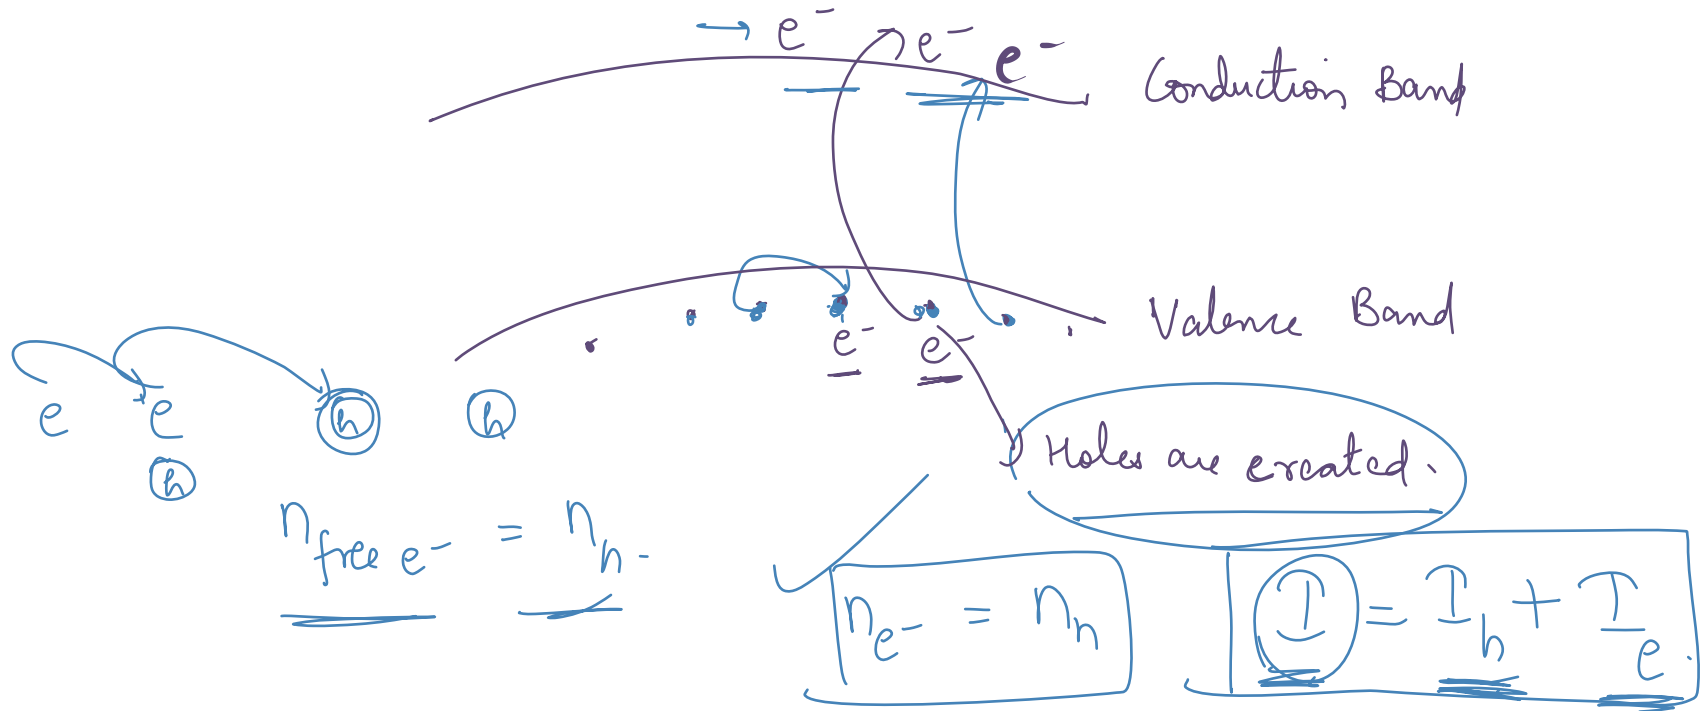 → e⁻ e⁻ e⁻ Conduction Band
Valence Band
e⁻ e⁻
e e h h
h
Holes are created.
n free e⁻ = n h-
n e⁻ = n h
I = I h + I e.